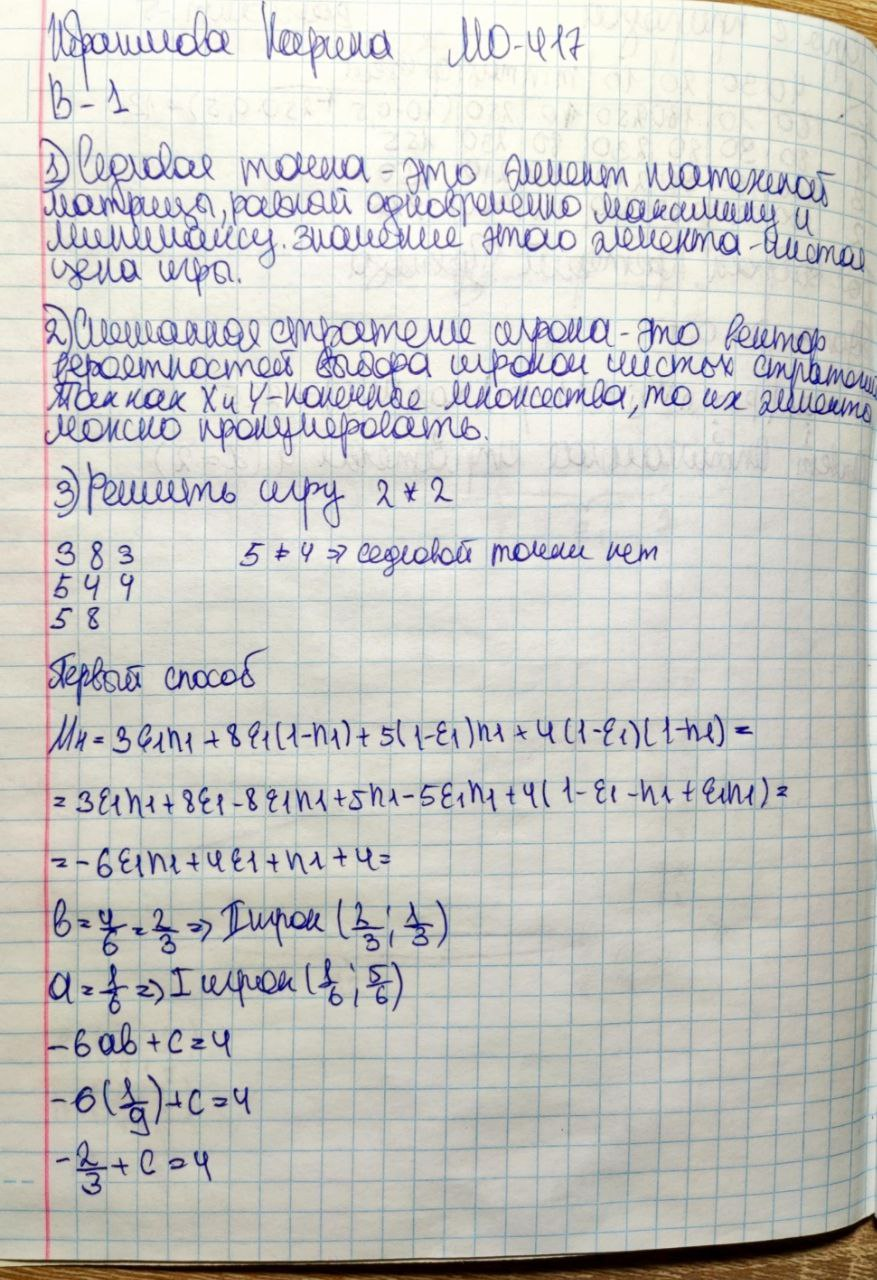 Ибрагимова Карина МО-417
В-1
1) Седловая точка - это элемент платежной
матрицы, равный одновременно максимину и
минимаксу. Значение этого элемента - чистая
цена игры.
2) Смешанная стратегия игрока - это вектор
вероятностей выбора игроком чистых стратегий
Так как X и Y - конечные множества, то их элементы
можно пронумеровать.
3) Решить игру 2*2
3 8 3 5 ≠ 4 => седловой точки нет
5 4 4
5 8
Первый способ
Mн = 3ξ1η1 + 8ξ1(1-η1) + 5(1-ξ1)η1 + 4(1-ξ1)(1-η1) =
= 3ξ1η1 + 8ξ1 - 8ξ1η1 + 5η1 - 5ξ1η1 + 4(1-ξ1-η1+ξ1η1) =
= -6ξ1η1 + 4ξ1 + η1 + 4 =
b = 4/6 = 2/3 => II игрок (2/3; 1/3)
a = 1/6 => I игрок (1/6; 5/6)
-6ab + c = 4
-6(1/9) + c = 4
-2/3 + c = 4